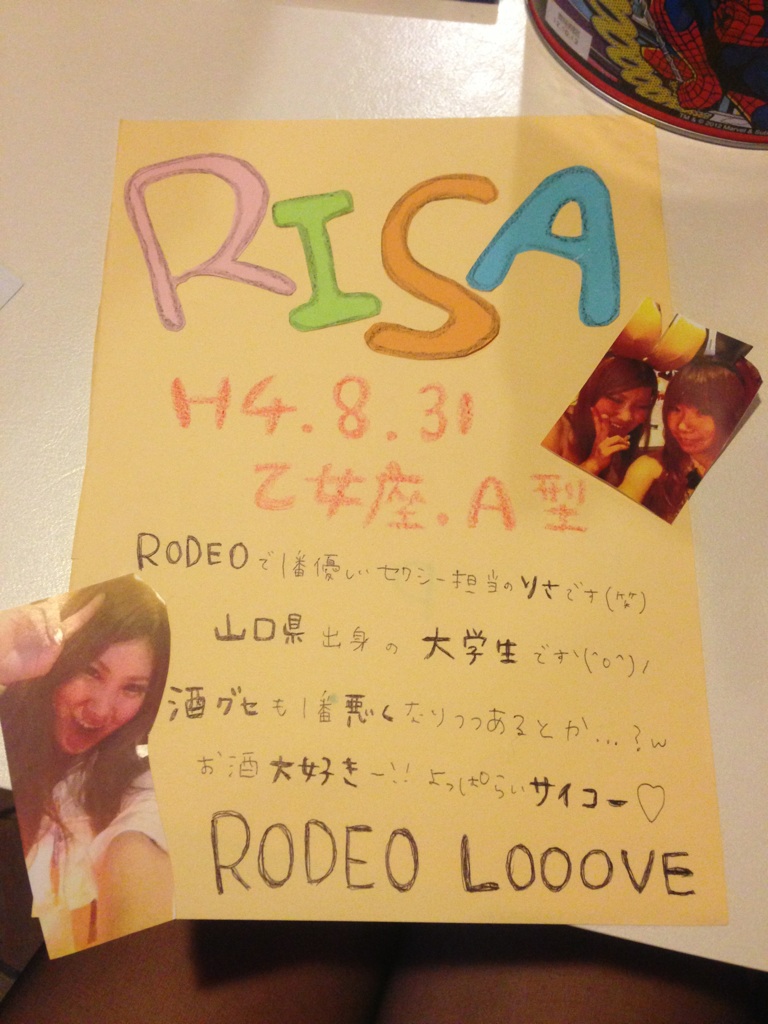 TM & © 2012 Marvel & Sub
RISA
H4.8.31
乙女座.A型
RODEOで1番優しいセクシー担当のりさです(笑)
山口県出身の大学生ですヽ(^o^)ノ
酒グセも1番悪くなりつつあるとか...?w
お酒大好きー!!よっぱらいサイコー♡
RODEO LOOOVE